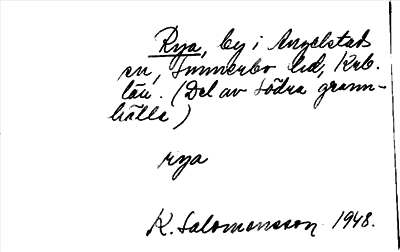 Rya, by i Angelstads
sn, Sunnerbo hd, Krb.
län. (Del av Södra grann-
hälla)
rya
K. Salomonsson 1948.